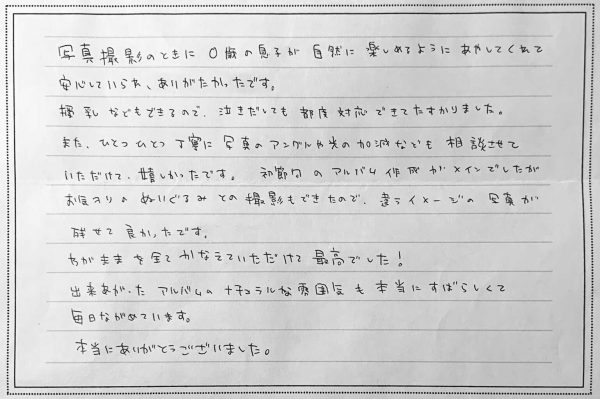 写真撮影のときに 0歳の息子が 自然に 楽しめるように あやしてくれて
安心していられ、ありがたかったです。
授乳などもできるので、泣きだしても 都度 対応 できてたすかりました。
また、ひとつひとつ 丁寧に 写真のアングルや光の加減なども 相談させて
いただけて、嬉しかったです。 初節句 の アルバム 作成 が メインでしたが
お気入りの ぬいぐるみ との 撮影もできたので、違うイメージの 写真が
残せて 良かったです。
わがままを全て かなえていただけて 最高でした!
出来あがったアルバムの ナチュラルな雰囲気も 本当に すばらしくて
毎日ながめています。
本当にありがとうございました。